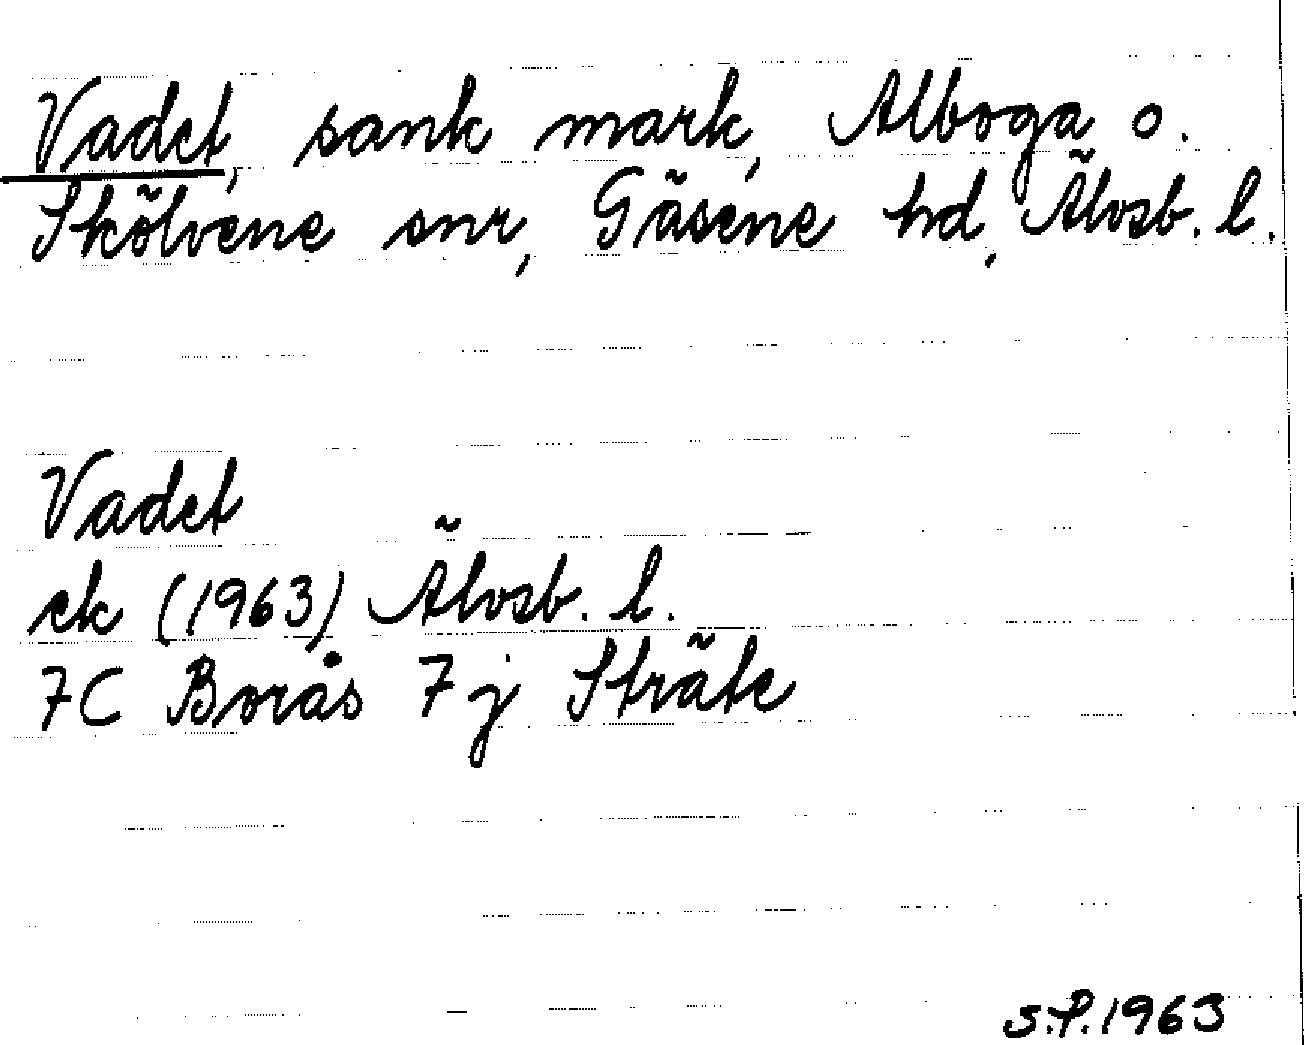 Vadet, sank mark, Alboga o.
Skölvene snr, Gäsene hd, Älvsb. l.
Vadet
ek (1963) Älvsb. l.
7C Borås 7j Sträte
S.P. 1963